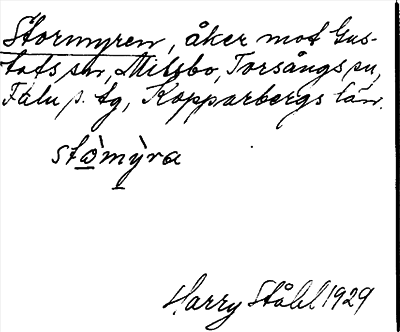 Stormyren, åker mot Gus-
tafs sn, Milsbo, Torsångs sn,
Falu s. tg, Kopparbergs län.
stò̱mỳra
Harry Ståhl 1929